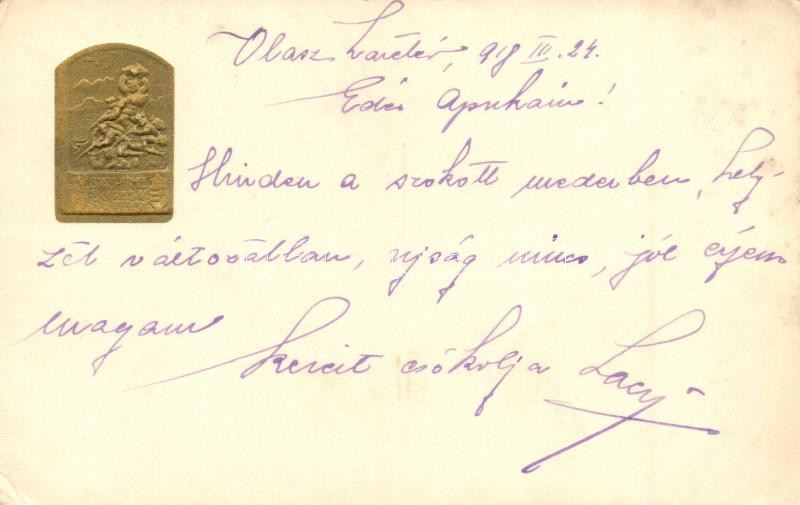 Olasz harctér, 918 III. 24.
Édes Apukám!
Minden a szokott mederben, hely-
zet változatlan, ujság nincs, jól érzem
magam
Kezeit csókolja Laci